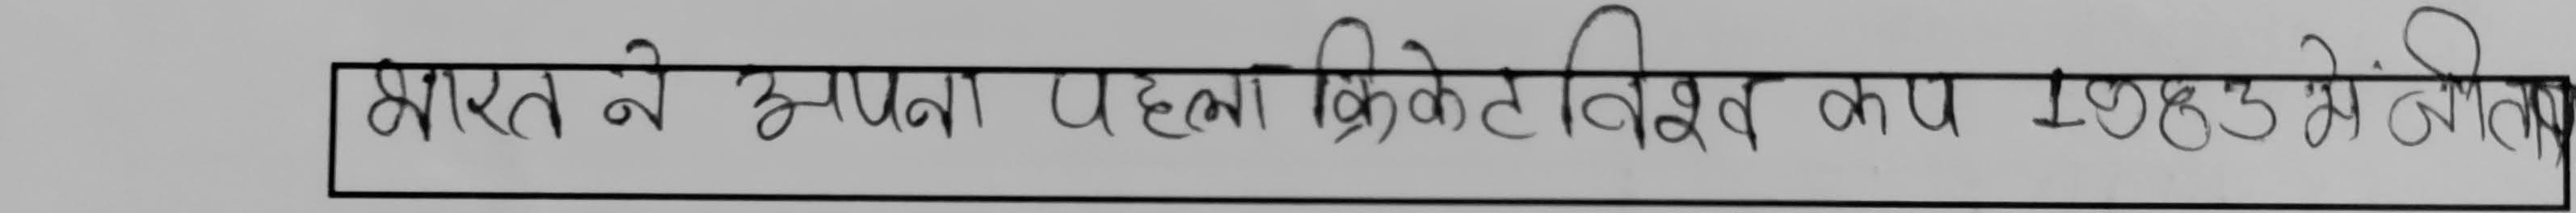 भारत ने अपना पहला क्रिकेट विश्व कप 1983 में जीता